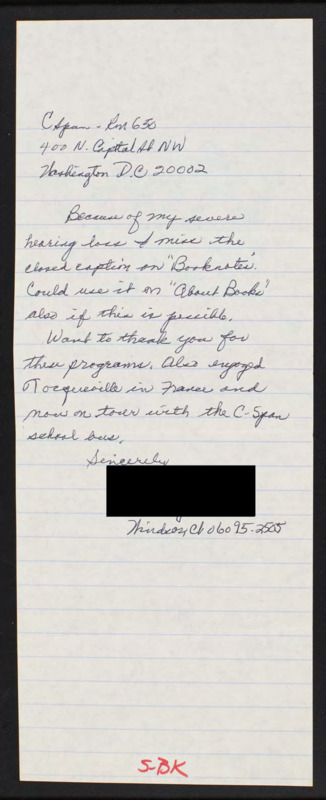 C Span - Rm 650
400 N. Capital St NW
Washington D.C 20002
Because of my severe
hearing loss I miss the
closed caption on "Booknotes".
Could use it on "About Books"
also if this is possible.
Want to thank you for
these programs. Also enjoyed
Tocqueville in France and
now on tour with the C-Span
school bus.
Sincerely
Windsor, Ct 06095-2505
S-BK